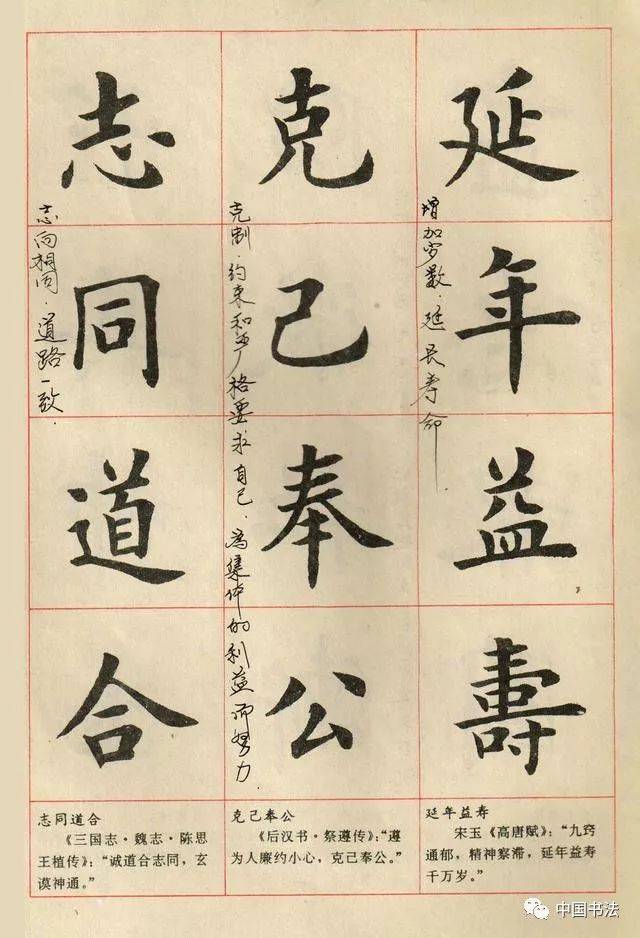 延年益壽
增加岁数．延长寿命
克己奉公
克制．约束和严格要求自己．為集体的利益而努力．
志同道合
志向相同．道路一致．
延年益寿
宋玉《高唐赋》：“九窍
通郁，精神察滞，延年益寿
千万岁。”
克己奉公
《后汉书·祭遵传》：“遵
为人廉约小心，克己奉公。”
志同道合
《三国志·魏志·陈思
王植传》：“诚道合志同，玄
谟神通。”
中国书法